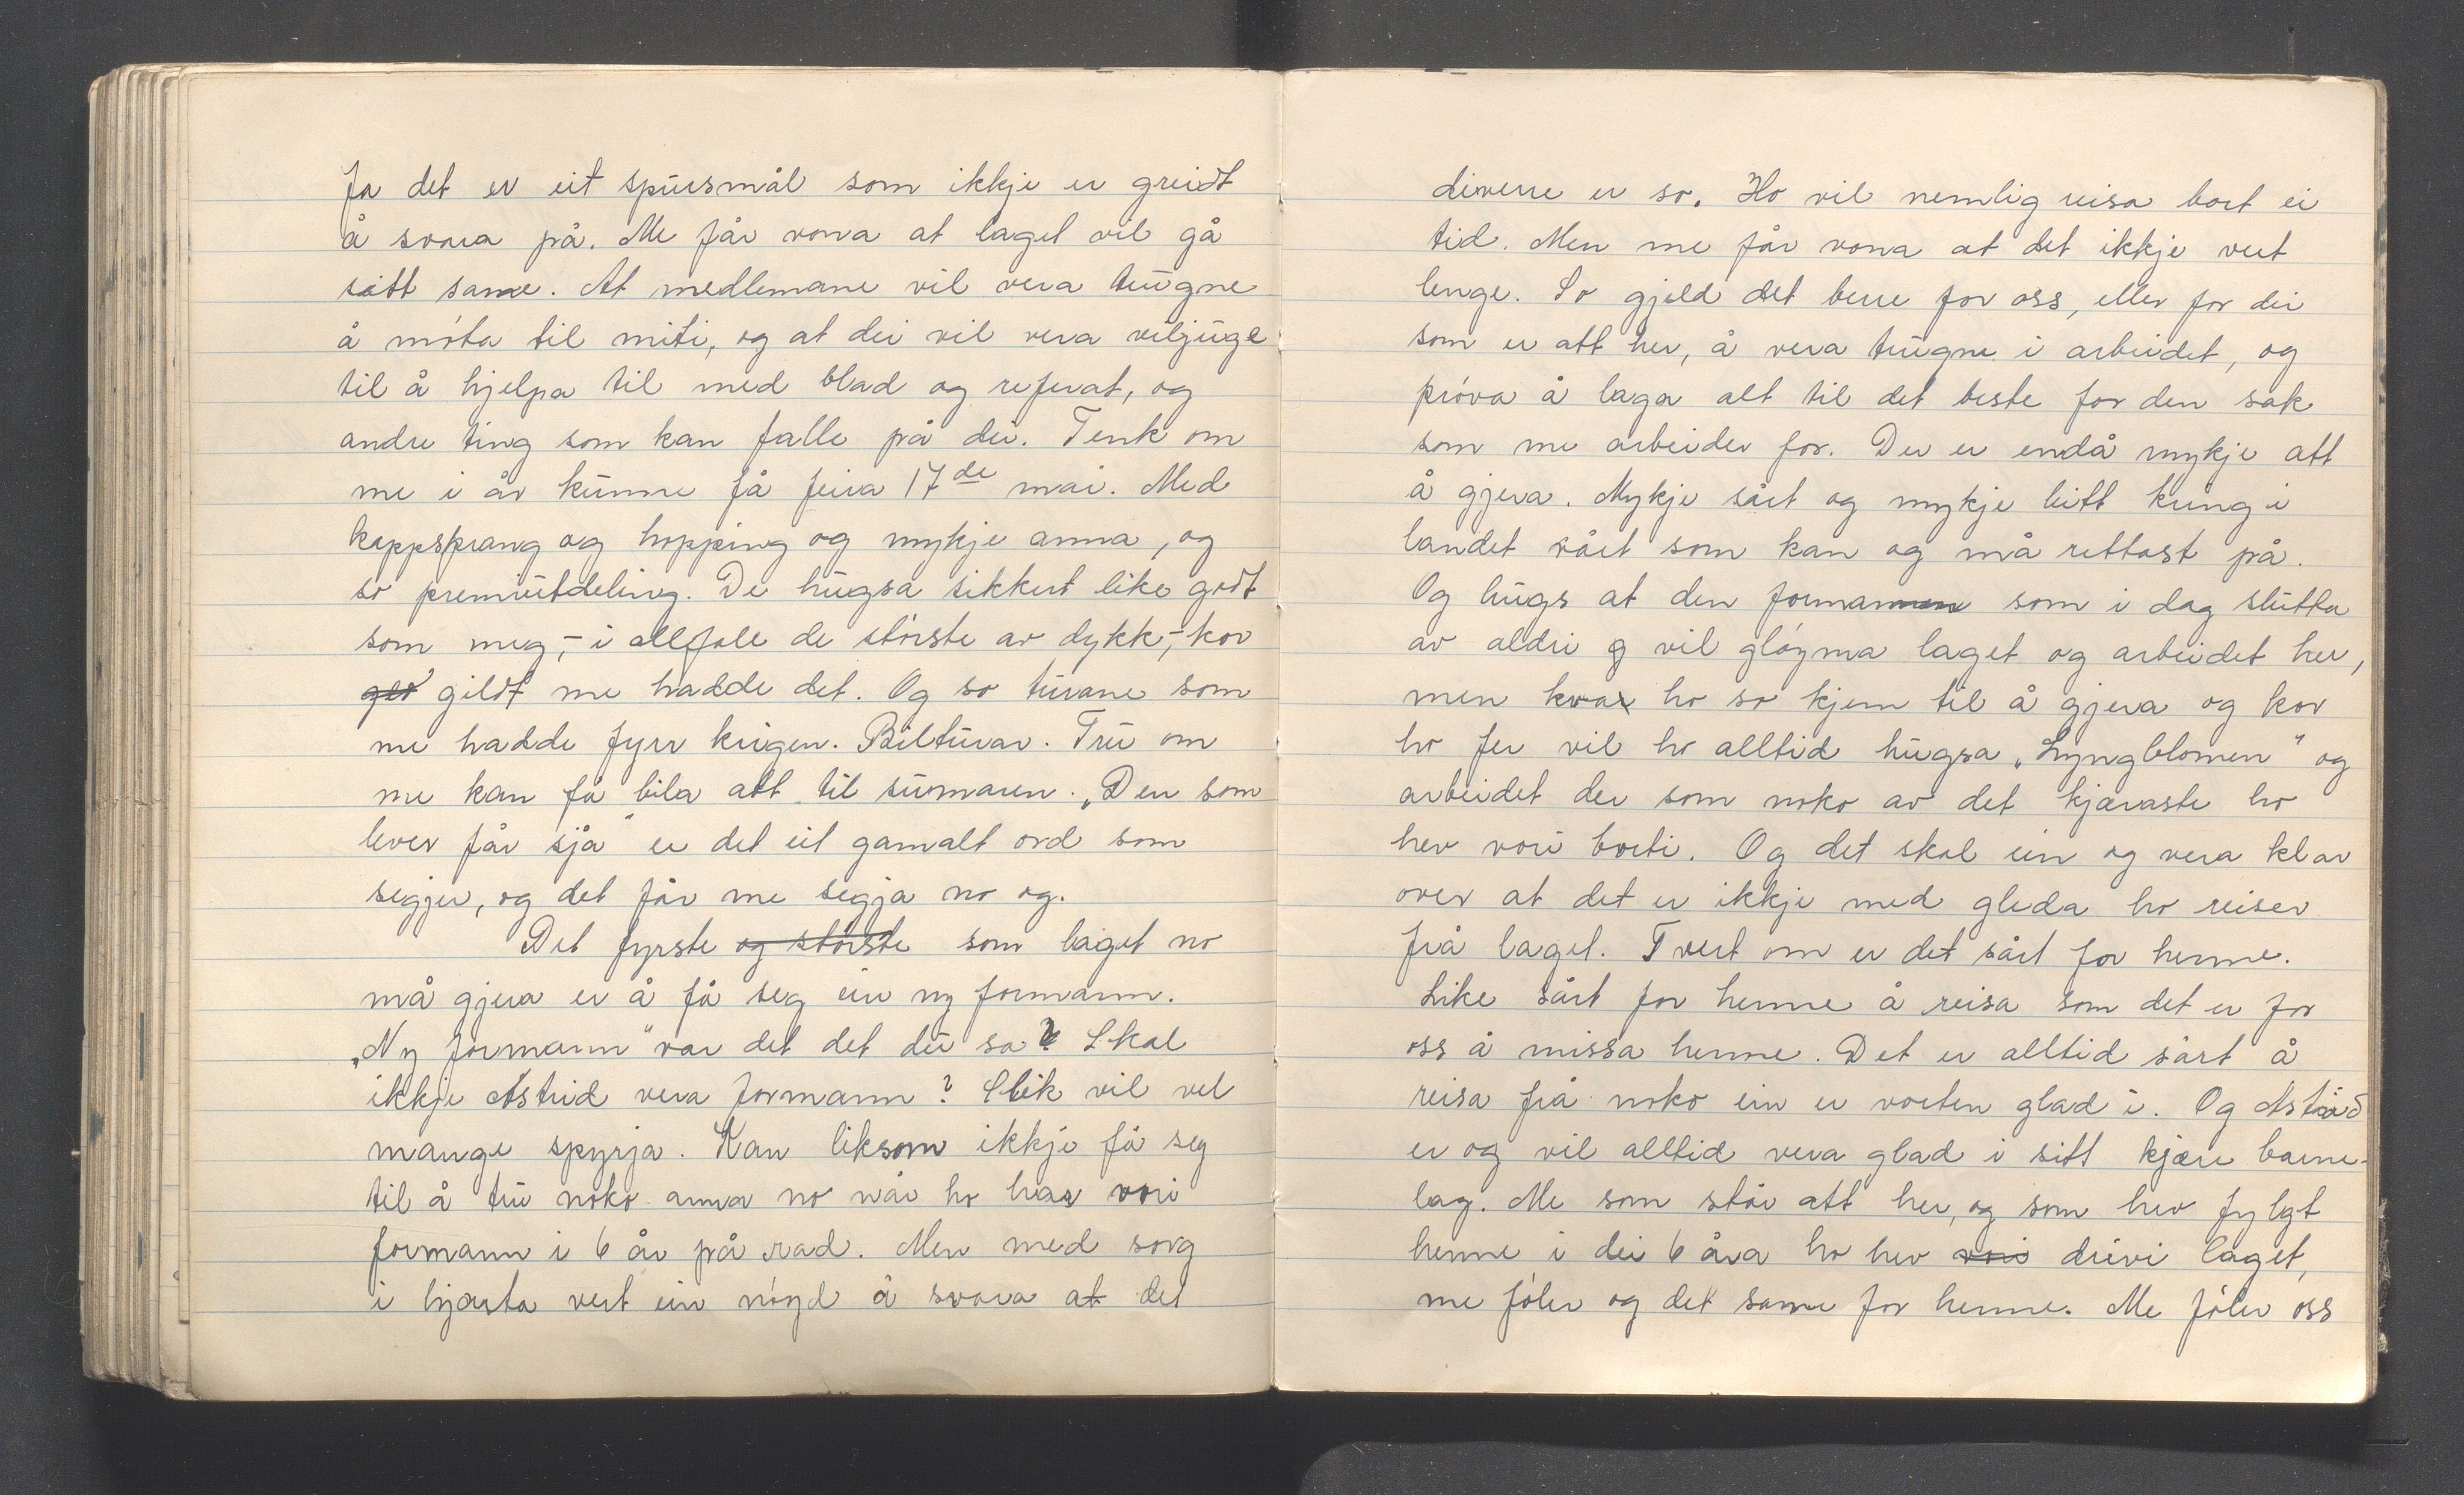 Ja det er eit spursmål som ikkje er greidt
å svara på. Me får vona at laget vil gå
sitt same. At medlemane vil vera trugne
å møta til miti, og at dei vil vera viljuge
til å hjelpa til med blad og referat, og
andre ting som kan falle på dei. Tenk om
me i år kunne få feira 17de mai. Med
kappsprang og hopping og mykje anna, og
so premiutdeling. De hugsa sikkert like godt
som meg, - i allfall de største av dykk, - kor
gildt me hadde det. Og so turane som
me hadde fyrr krigen. Bilturar. Tru om
me kan få bila att til sumaren. „Den som
lever får sjå" er det eit gamalt ord som
segjer, og det får me segja no og.
Det fyrste og største som laget no
må gjera er å få seg ein ny formann.
„Ny formann" var det det du sa? Skal
ikkje Astrid vera formann? Slik vil vel
mange spyrja. Kan liksom ikkje få seg
til å tru noko anna no når ho har vori
formann i 6 år på rad. Men med sorg
i hjarta vert ein nøyd å svara at det
diverre er so. Ho vil nemlig reisa bort ei
tid. Men me får vona at det ikkje vert
lenge. So gjeld det berre for oss, eller for dei
som er att her, å vera trugne i arbeidet, og
prøva å laga alt til det beste for den sak
som me arbeider for. Der er endå mykje att
å gjera. Mykje sårt og mykje leitt kring i
landet vårt som kan og må rettast på.
Og hugs at den formannen som i dag slutta
av aldri vil gløyma laget og arbeidet her,
men kva ho so kjem til å gjera og kor
ho fer vil ho alltid hugsa „Lyngblomen" og
arbeidet der som noko av det kjæraste ho
hev vori borti. Og det skal ein og vera klar
over at det er ikkje med gleda ho reiser
frå laget. Tvert om er det sårt for henne.
Like sårt for henne å reisa som det er for
oss å missa henne. Det er alltid sårt å
reisa frå noko ein er vorten glad i. Og Astrid
er og vil alltid vera glad i sitt kjære barne-
lag. Me som står att her, og som hev fylgt
henne i dei 6 åra ho hev vori drivi laget,
me føler og det same for henne. Me føler oss